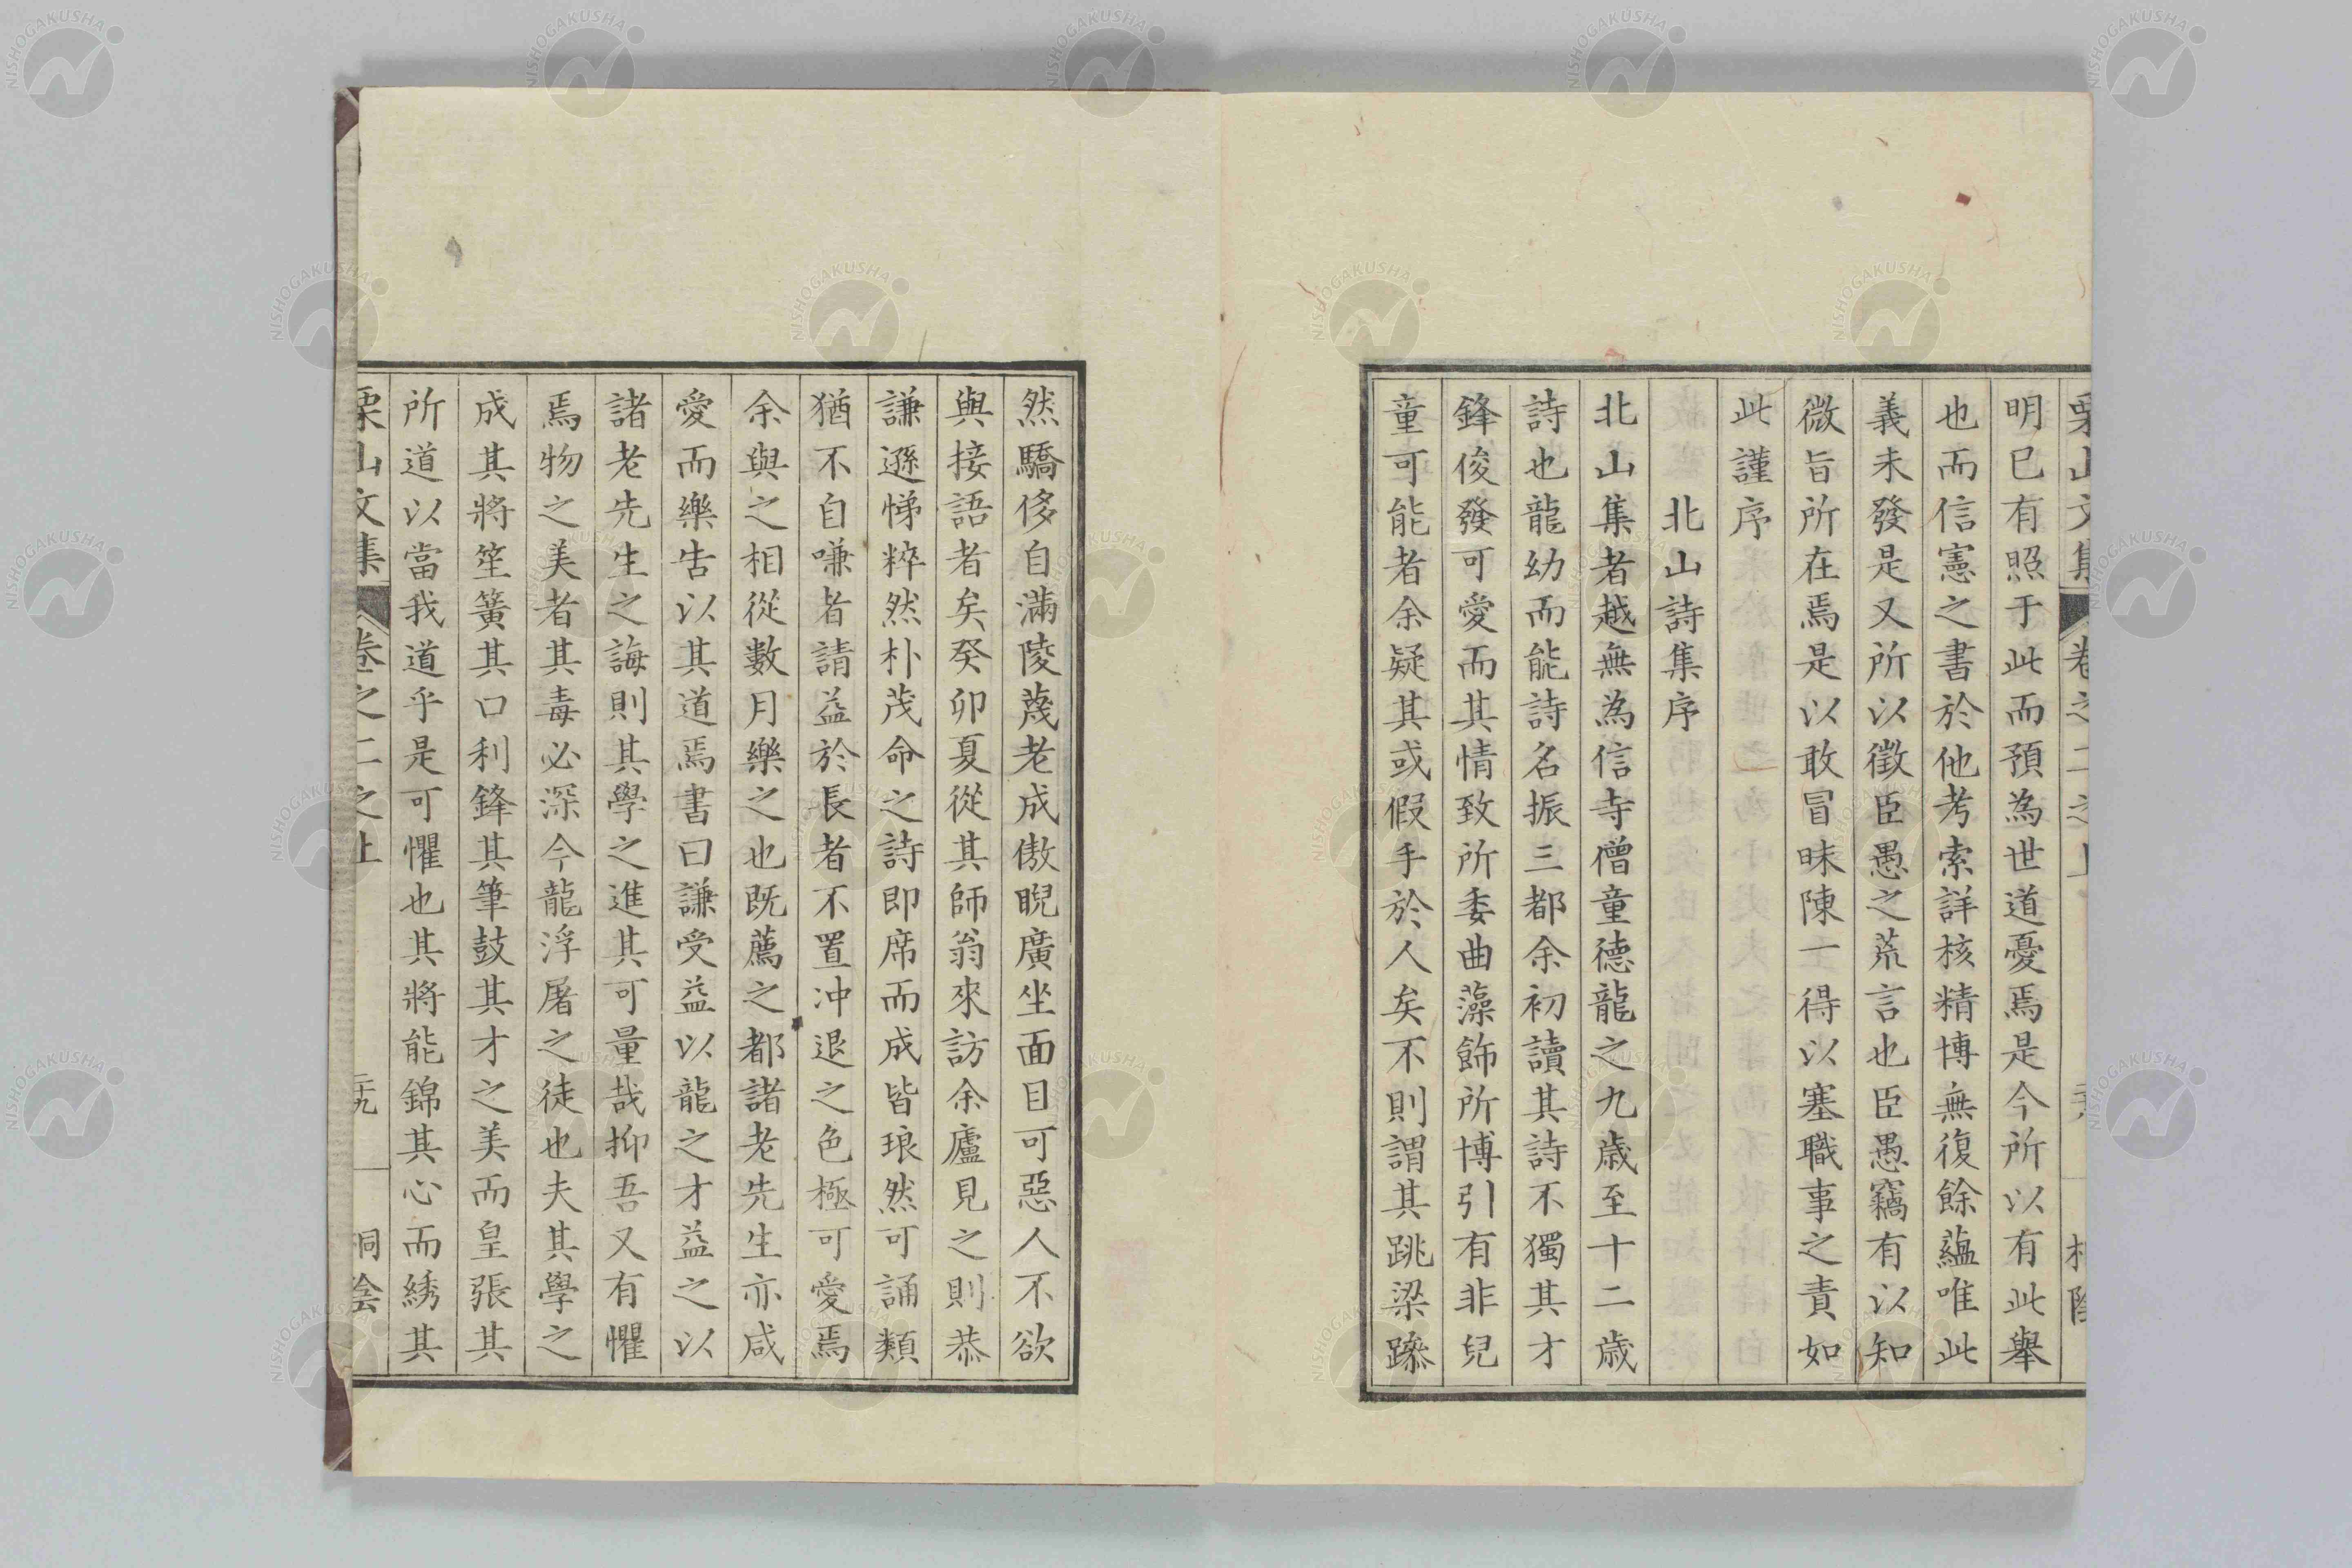 栗山文集 卷之二之上
明已有照于此而預為世道憂焉是今所以有此舉
也而信憲之書於他考索詳核精博無復餘蘊唯此
義未發是又所以徵臣愚之荒言也臣愚竊有以知
微旨所在焉是以敢冒昧陳一得以塞職事之責如
此謹序
北山詩集序
北山集者越無為信寺僧童德龍之九歲至十二歲
詩也龍幼而能詩名振三都余初讀其詩不獨其才
鋒俊發可愛而其情致所委曲藻飾所博引有非兒
童可能者余疑其或假手於人矣不則謂其跳梁躒
然驕侈自滿陵蔑老成傲睨廣坐面目可惡人不欲
與接語者矣癸卯夏從其師翁來訪余廬見之則恭
謙遜悌粹然朴茂命之詩即席而成皆琅然可誦類
猶不自嗛者請益於長者不置冲退之色極可愛焉
余與之相從數月樂之也既薦之都諸老先生亦咸
愛而樂告以其道焉書曰謙受益以龍之才益之以
諸老先生之誨則其學之進其可量哉抑吾又有懼
焉物之美者其毒必深今龍浮屠之徒也夫其學之
成其將笙簧其口利鋒其筆鼓其才之美而皇張其
所道以當我道乎是可懼也其將能錦其心而綉其
栗山文集 卷之二之上 二十九 桐陰
NISHOGAKUSHA